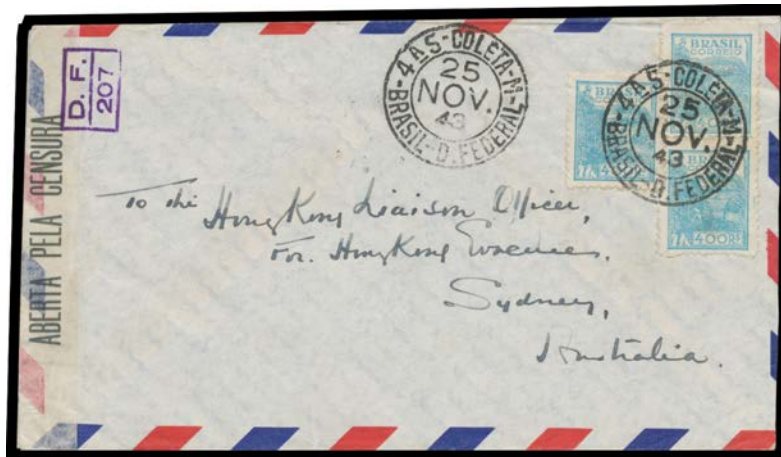 D. F.
207
ABERTA PELA CENSURA
4ª S-COLETA-M-
25
NOV.
43
BRASIL-D.FEDERAL
BRASIL
CORREIO
4ª S-COLETA-M-
25
NOV.
43
BRASIL-D.FEDERAL
400 RÉIS
To the
Hong Kong Liaison Officer,
For. Hong Kong Evacuees.
Sydney,
Australia.